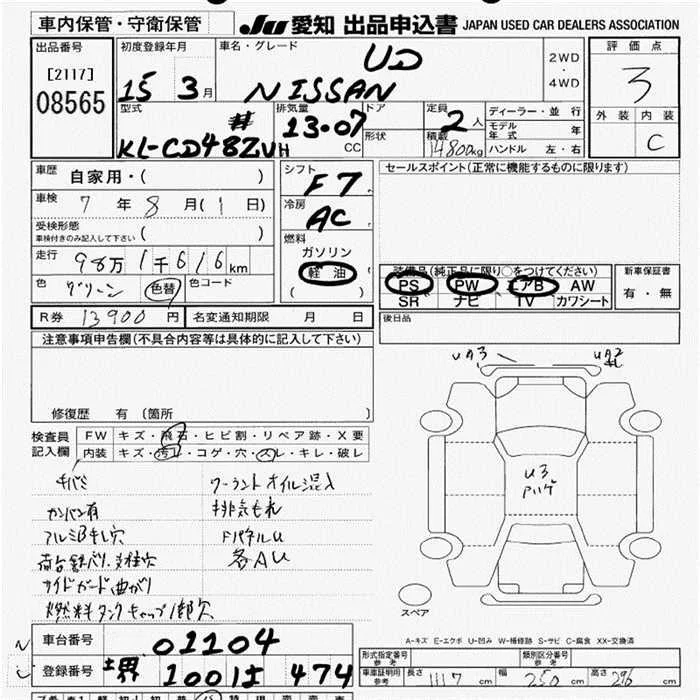 車内保管・守衛保管
JU 愛知 出品申込書 JAPAN USED CAR DEALERS ASSOCIATION
出品番号
[2117]
08565
初度登録年月
15 3月
車名・グレード
UD
NISSAN
2WD
・
4WD
評価点
3
外装 内装
C
型式
KL-CD48ZVH
排気量
13.07
CC
ドア
形状
定員
2人
積載
14800kg
ディーラー・並行
モデル年式 年
ハンドル 左・右
車歴
自家用・( )
車検
7年8月(1日)
受検形態
車検付きのみ記入して下さい ( )
走行
98万1千616km
色
グリーン
色替
色コード
シフト
F7
冷房
AC
燃料
ガソリン
軽油
( )
セールスポイント(正常に機能するものに限ります)
装備品(純正品に限り○をつけてください)
PS PW エアB AW
SR ナビ TV カワシート
新車保証書
有・無
R券 13900円
名変通知期限 月 日
後日品
注意事項申告欄(不具合内容等は具体的に記入して下さい)
修復歴 有(箇所 )
検査員
記入欄
FW キズ・飛石・ヒビ割・リペア跡・X要
内装 キズ・汚れ・コゲ・穴・スレ・キレ・破レ
カンバン有
アルミBキレ穴
サイドガード曲がり
燃料タンクキャップ1部欠
クーラントオイル混入
排気もれ
FパネルU
各AU
UA3
UA2
U3
スペア
A-キズ E-エクボ U-凹み W-補修跡 S-サビ C-腐食 XX-交換済
車台番号
01104
登録番号
堺 100は 474
形式指定番号
参考
類別区分番号
参考
車庫証明用
参考
長さ 1117cm
幅 250cm
高さ 296cm